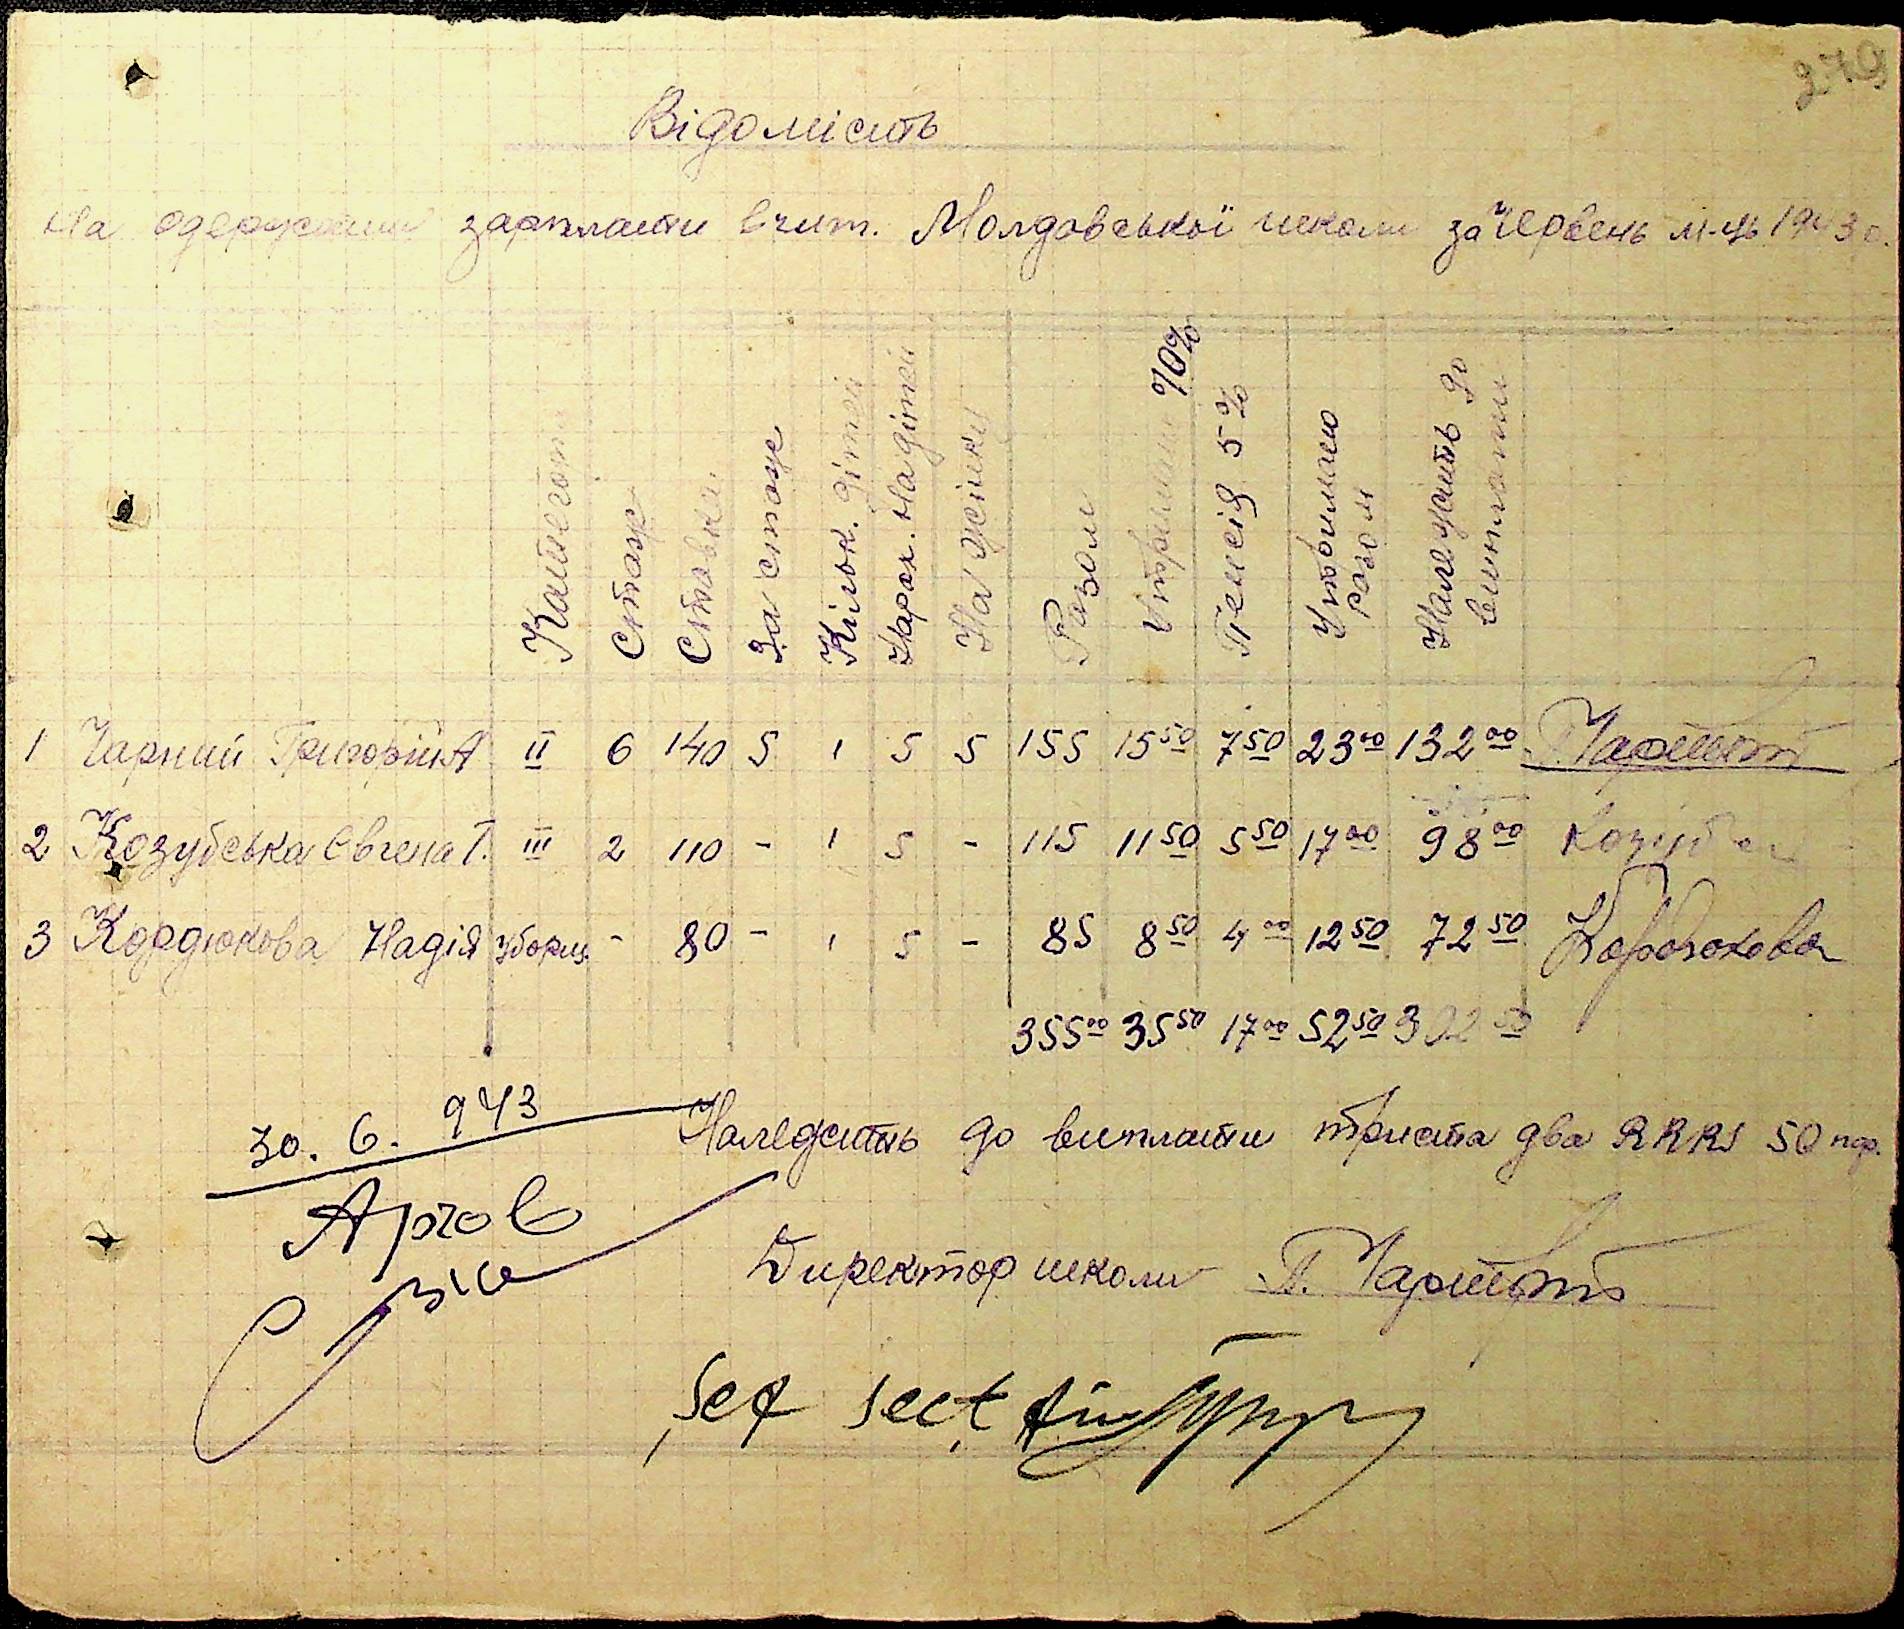 279
Відомість
На одержання зарплати вчит. Молдавської школи за Червень м-ць 1943 р.
Категорія Стаж Ставка За стаж Кільк. дітей Нарах. на дітей На жінку Разом Утримано 10% Пенсія 5% Утримано разом Належить до виплати
1 Чарний Григорій А II 6 140 5 1 5 5 155 15 50 7 50 23 00 132 00
2 Козубська Євгена Т. III 2 110 - 1 5 - 115 11 50 5 50 17 00 98 00 Козубськ
3 Кордюкова Надія Уборщ. - 80 - 1 5 - 85 8 50 4 00 12 50 72 50 Кордюкова
355 00 35 50 17 00 52 50 302 50
30. 6. 943
Належить до виплати триста два RKKS 50 пф.
Директор школи
Șef secț